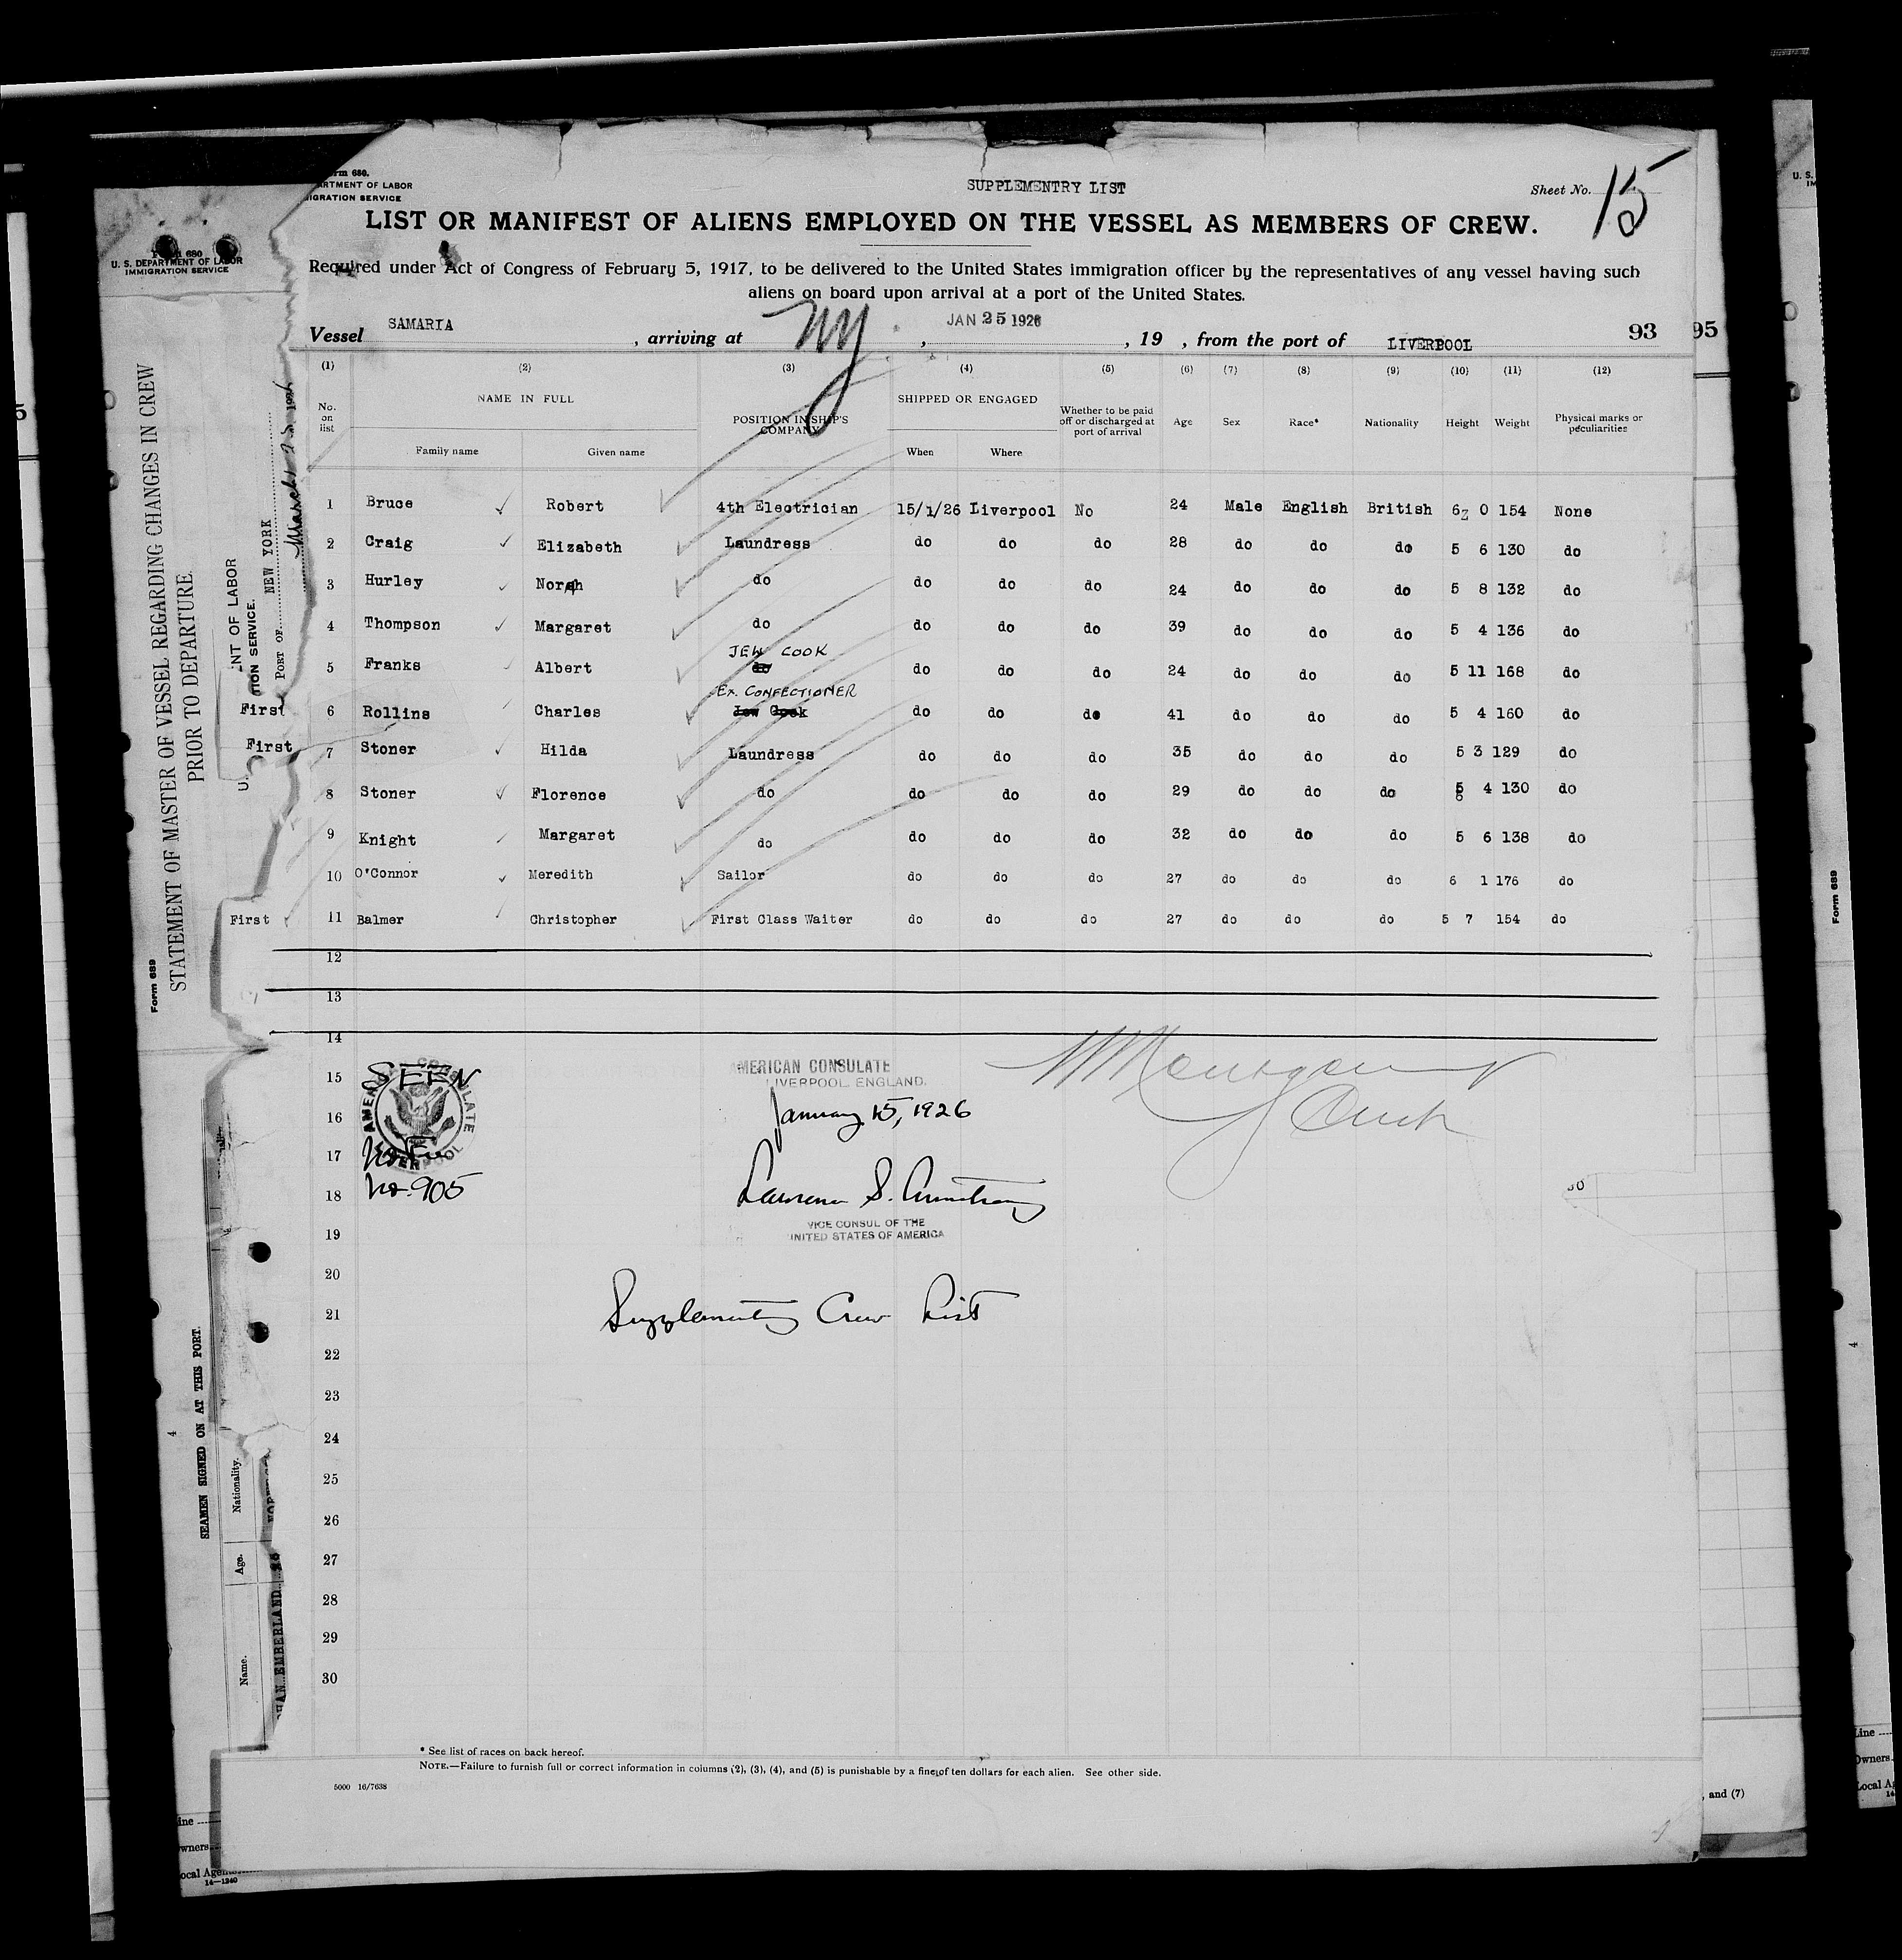 Form 680.
ARTMENT OF LABOR
IGRATION SERVICE
SUPPLEMENTRY LIST
Sheet No. 15
LIST OR MANIFEST OF ALIENS EMPLOYED ON THE VESSEL AS MEMBERS OF CREW.
Required under Act of Congress of February 5, 1917, to be delivered to the United States immigration officer by the representatives of any vessel having such
aliens on board upon arrival at a port of the United States.
Vessel SAMARIA , arriving at NY , JAN 25 1926 , 19 , from the port of LIVERPOOL 93
95
(1) (2) (3) (4) (5) (6) (7) (8) (9) (10) (11) (12)
No. on list
NAME IN FULL
Family name Given name
POSITION IN SHIP'S COMPANY
SHIPPED OR ENGAGED
When Where
Whether to be paid off or discharged at port of arrival
Age Sex Race* Nationality Height Weight
Physical marks or peculiarities
1 Bruce Robert 4th Electrician 15/1/26 Liverpool No 24 Male English British 6 0 154 None
2 Craig Elizabeth Laundress do do do 28 do do do 5 6 130 do
3 Hurley Norah do do do do 24 do do do 5 8 132 do
4 Thompson Margaret do do do do 39 do do do 5 4 136 do
JEW COOK
5 Franks Albert do do do do 24 do do do 5 11 168 do
Ex. CONFECTIONER
First 6 Rollins Charles Jew Cook do do do 41 do do do 5 4 160 do
First 7 Stoner Hilda Laundress do do do 35 do do do 5 3 129 do
8 Stoner Florence do do do do 29 do do do 5 4 130 do
9 Knight Margaret do do do do 32 do do do 5 6 138 do
10 O'Connor Meredith Sailor do do do 27 do do do 6 1 176 do
First 11 Balmer Christopher First Class Waiter do do do 27 do do do 5 7 154 do
12
13
14
15 SEEN
AMERICAN CONSULATE
LIVERPOOL
MERICAN CONSULATE
LIVERPOOL, ENGLAND.
16 January 15, 1926
17 No Fee
18 No. 905
Lawrence S. Armstrong
VICE CONSUL OF THE
UNITED STATES OF AMERICA
19
20
21 Supplementary Crew List
22
23
24
25
26
27
28
29
30
* See list of races on back hereof.
NOTE.—Failure to furnish full or correct information in columns (2), (3), (4), and (5) is punishable by a fine of ten dollars for each alien. See other side.
5000 16/7638
Form 680
U. S. DEPARTMENT OF LABOR
IMMIGRATION SERVICE
Form 689
STATEMENT OF MASTER OF VESSEL REGARDING CHANGES IN CREW
PRIOR TO DEPARTURE.
NT OF LABOR
TION SERVICE.
PORT OF NEW YORK
SEAMEN SIGNED ON AT THIS PORT.
4
Nationality.
Age.
Name.
EMBERLAND
ine
wners
ocal Agen
14—1240
, and (7)
U. S.
IM
Form 689
4
Line
Owners
Local Ag
14